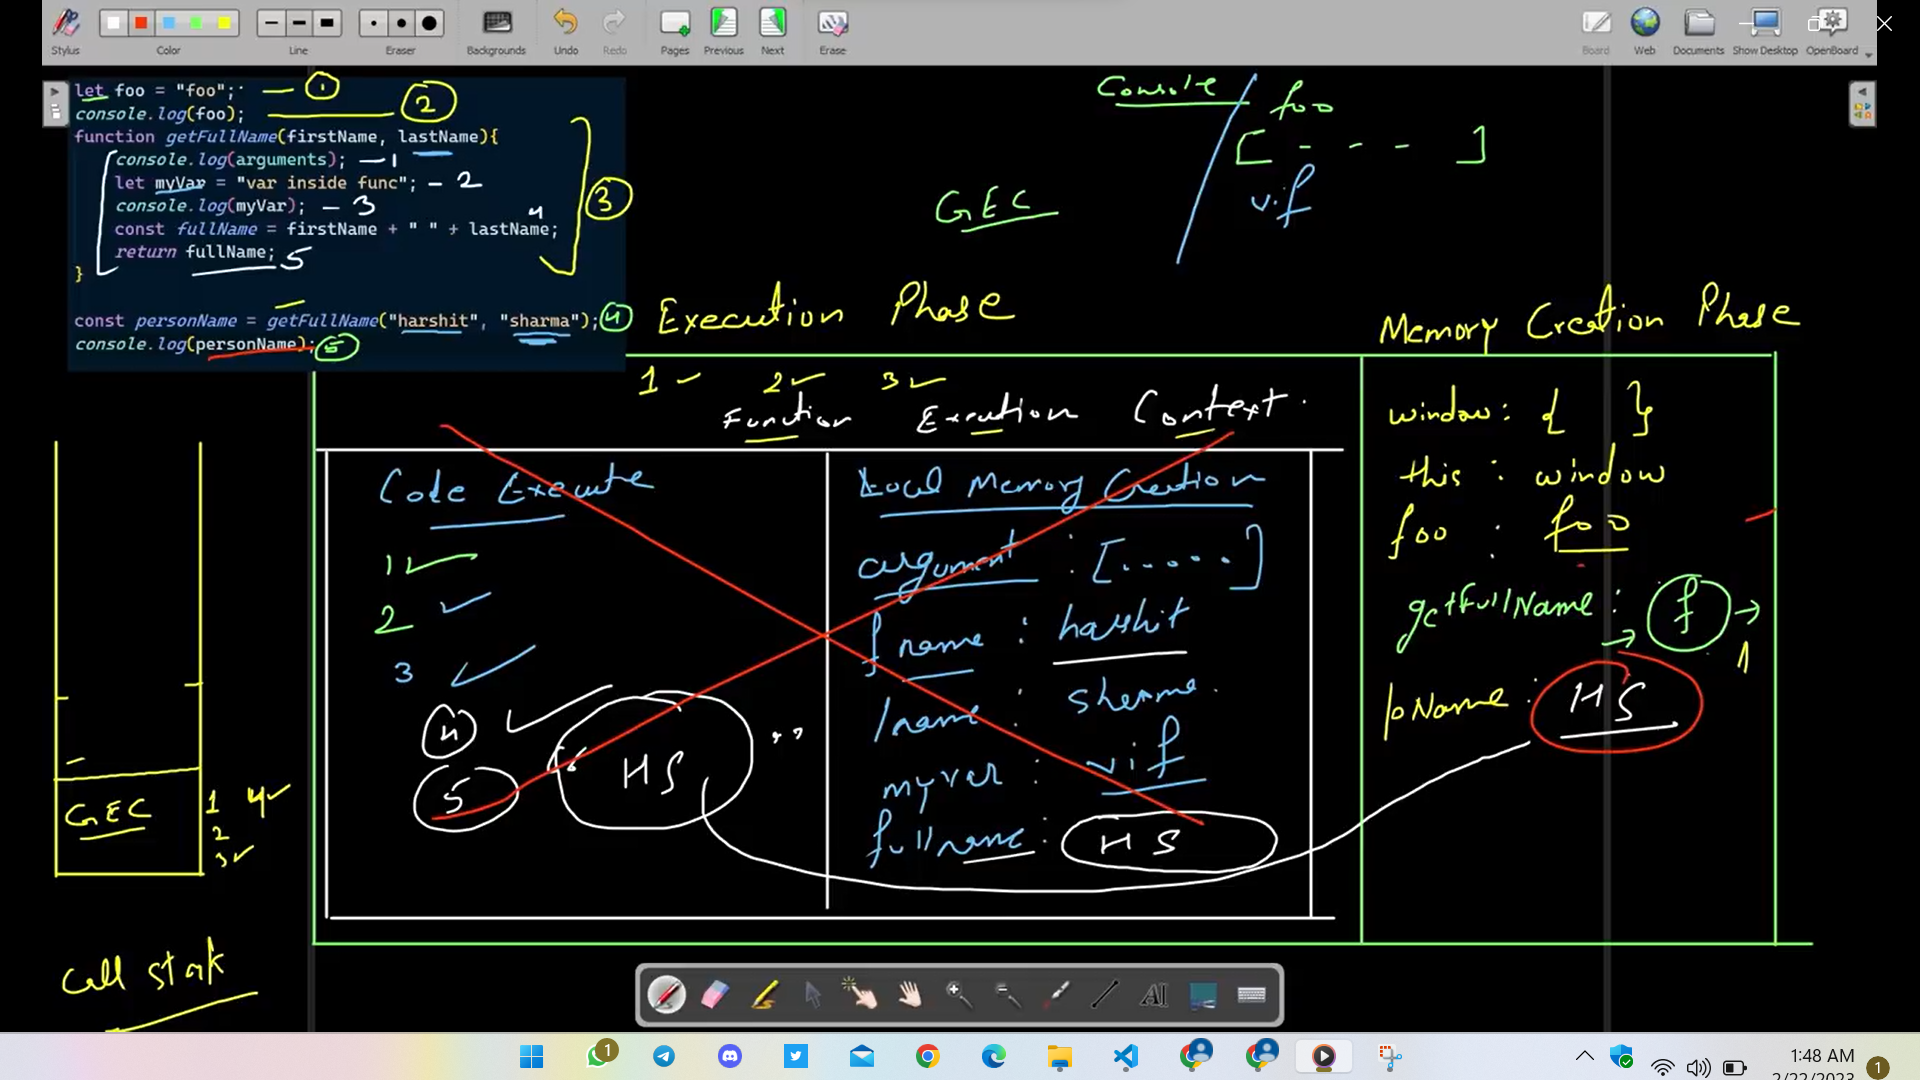 Stylus
Color
Line
Eraser
Backgrounds
Undo
Redo
Pages
Previous
Next
Erase
Board
Web
Documents
Show Desktop
OpenBoard
let foo = "foo"; 1
console.log(foo); 2
function getFullName(firstName, lastName){
console.log(arguments); -1
let myVar = "var inside func"; - 2
console.log(myVar); - 3
const fullName = firstName + " " + lastName; 4
return fullName; 5
}
3
const personName = getFullName("harshit", "sharma"); 4
console.log(personName); 5
Console
foo
[ - - - ]
vif
GEC
Execution Phase
Memory Creation Phase
1 2 3
Function Execution Context.
Code Execute
1
2
3
4
5
" HS "
Local Memory Creation
argument : [.....]
fname : harshit
lname : sharma.
myvar : vif
fullname : HS
window: { }
this : window
foo : foo
getFullName : f
1
pName : HS
GEC
1 4
2
3
Call stack
AI
1
1:48 AM
2/22/2023
1